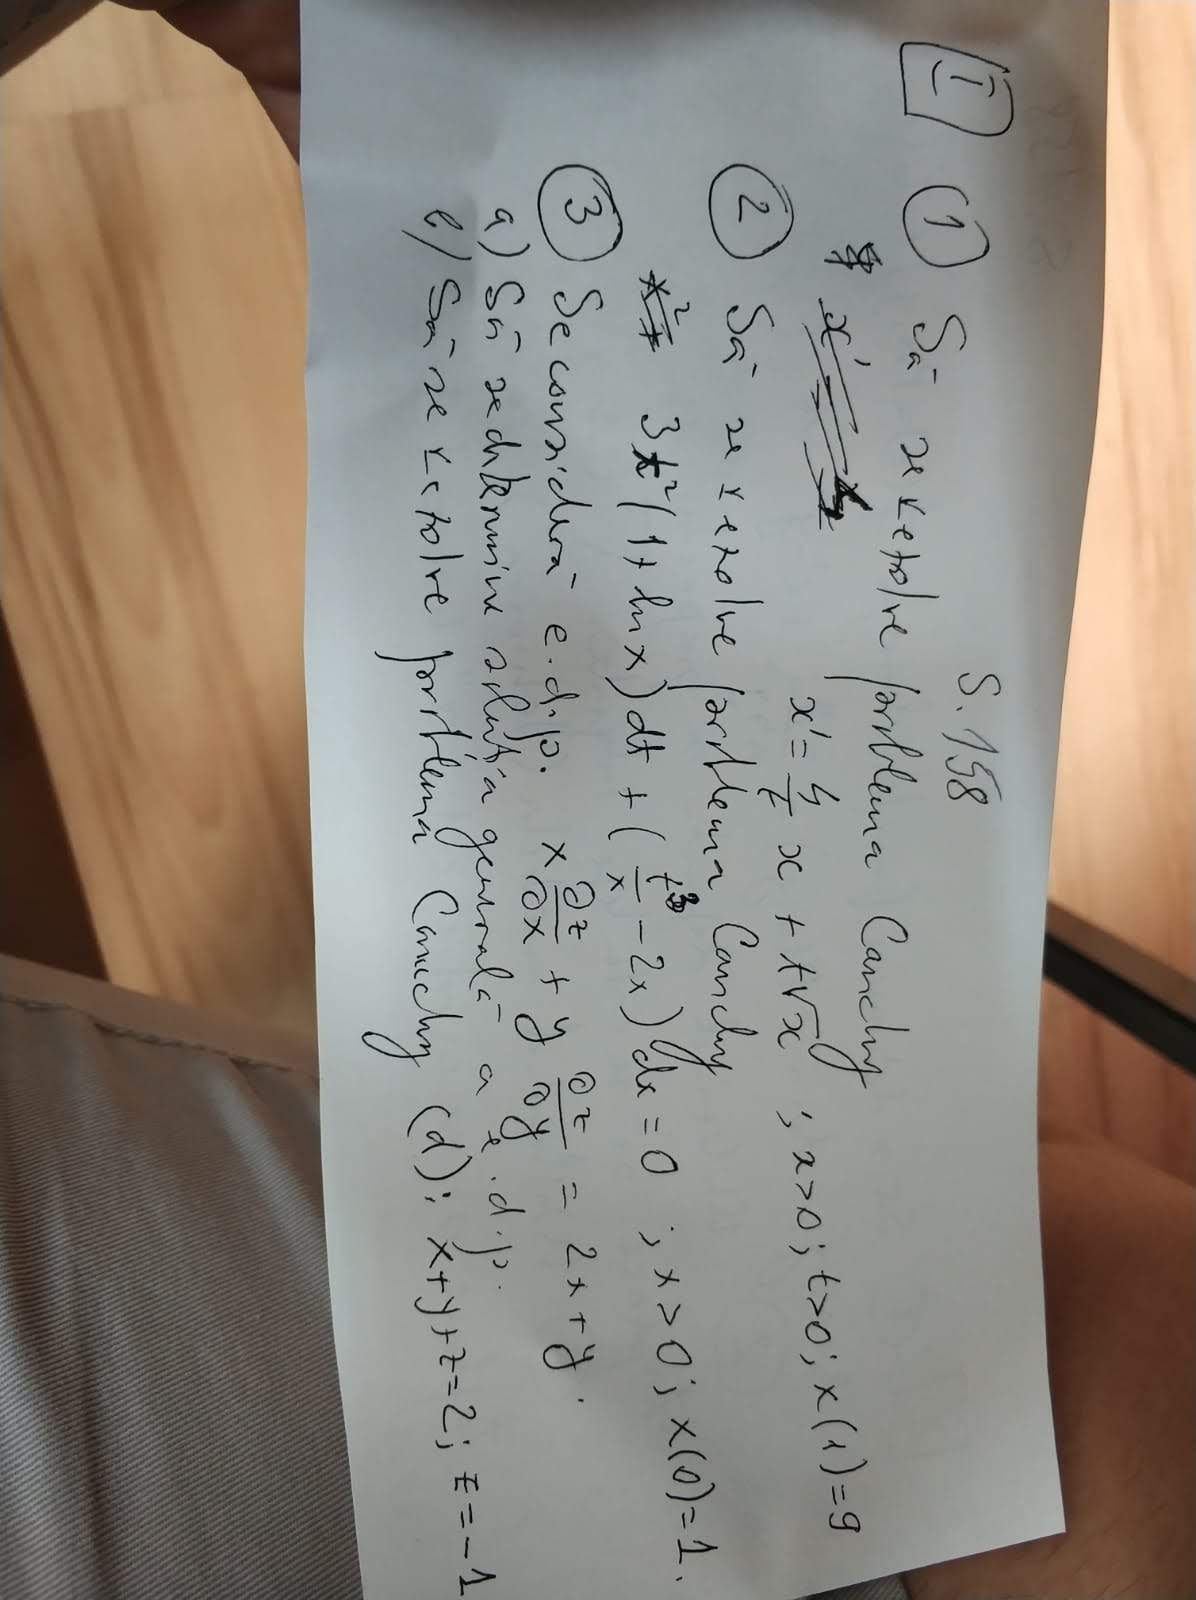 S. 158
I 1 Să se rezolve problema Cauchy
x' = 4/t x + t√x ; x>0; t>0; x(1)=9
2 Să se rezolve problema Cauchy
3t²(1+ln x)dt + (t³/x - 2x)dx = 0 ; x>0; x(0)=1.
3 Se consideră e.d.p. x ∂z/∂x + y ∂z/∂y = 2x+y.
a) Să se determine soluția generală a e.d.p.
b) Să se rezolve problema Cauchy (d): x+y+z=2; z=-1